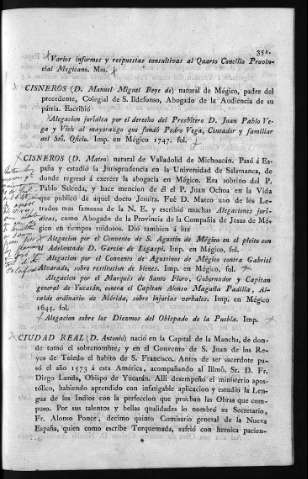 352.
Varios informes y respuestas consultivas al Quarto Concilio Provin-
cial Megicano. Mss.
CISNEROS (D. Manuel Miguel Feye de) natural de Mégico, padre del
precedente, Colegial de S. Ildefonso, Abogado de la Audiencia de su
patria. Escribió
Alegacion juridica por el derecho del Presbitero D. Juan Pablo Ve-
ga y Vich al mayorazgo que fundó Pedro Vega, Contador y familiar
del Sto. Oficio. Imp. en Mégico 1747. fol.
CISNEROS (D. Mateo) natural de Valladolid de Michoacán. Pasó á Es-
paña y estudió la Jurisprudencia en la Universidad de Salamanca, de
donde regresó á exercer la abogacia en Mégico. Era sobrino del P.
Pablo Salceda, y hace mencion de él el P. Juan Ochoa en la Vida
que publicó de aquel docto Jesuita. Fué D. Mateo uno de los Le-
trados mas famosos de la N. E. y escribió muchas Alegaciones juri-
dicas, como Abogado de la Provincia de la Compañia de Jesus de Mé-
gico en tiempos ruidosos. Dió tambien á luz
Alegacion por el Convento de S. Agustin de Mégico en el pleito con
el Adelantado D. Garcia de Legazpi. Imp. en Mégico, fol.
Alegacion por el Convento de Agustinos de Mégico contra Gabriel
Alvarado, sobre restitucion de bienes. Imp. en Mégico, fol.
Alegacion por el Marqués de Santo Floro, Gobernador y Capitan
general de Yucatán, contra el Capitan Alonso Magaña Padilla, Al-
calde ordinario de Mérida, sobre injurias verbales. Imp. en Mégico
1645. fol.
Alegacion sobre los Diezmos del Obispado de la Puebla. Imp.
CIUDAD REAL (D. Antonio) nació en la Capital de la Mancha, de don-
de tomó el sobrenombre, y en el Convento de S. Juan de los Re-
yes de Toledo el hábito de S. Francisco. Antes de ser sacerdote pa-
só el año 1573 á esta América, acompañando al Illmô. Sr. D. Fr.
Diego Landa, Obispo de Yucatán. Allí desempeñó el ministerio apos-
tólico, habiendo aprendido con infatigable aplicacion y estudio la Len-
gua de los Indios con la perfeccion que prueban las Obras que compu-
so. Por sus talentos y bellas qualidades lo nombró su Secretario,
Fr. Alonso Ponce, decimo quinto Comisario general de la Nueva
España, quien como escribe Torquemada, sufrió con heroica pacien-